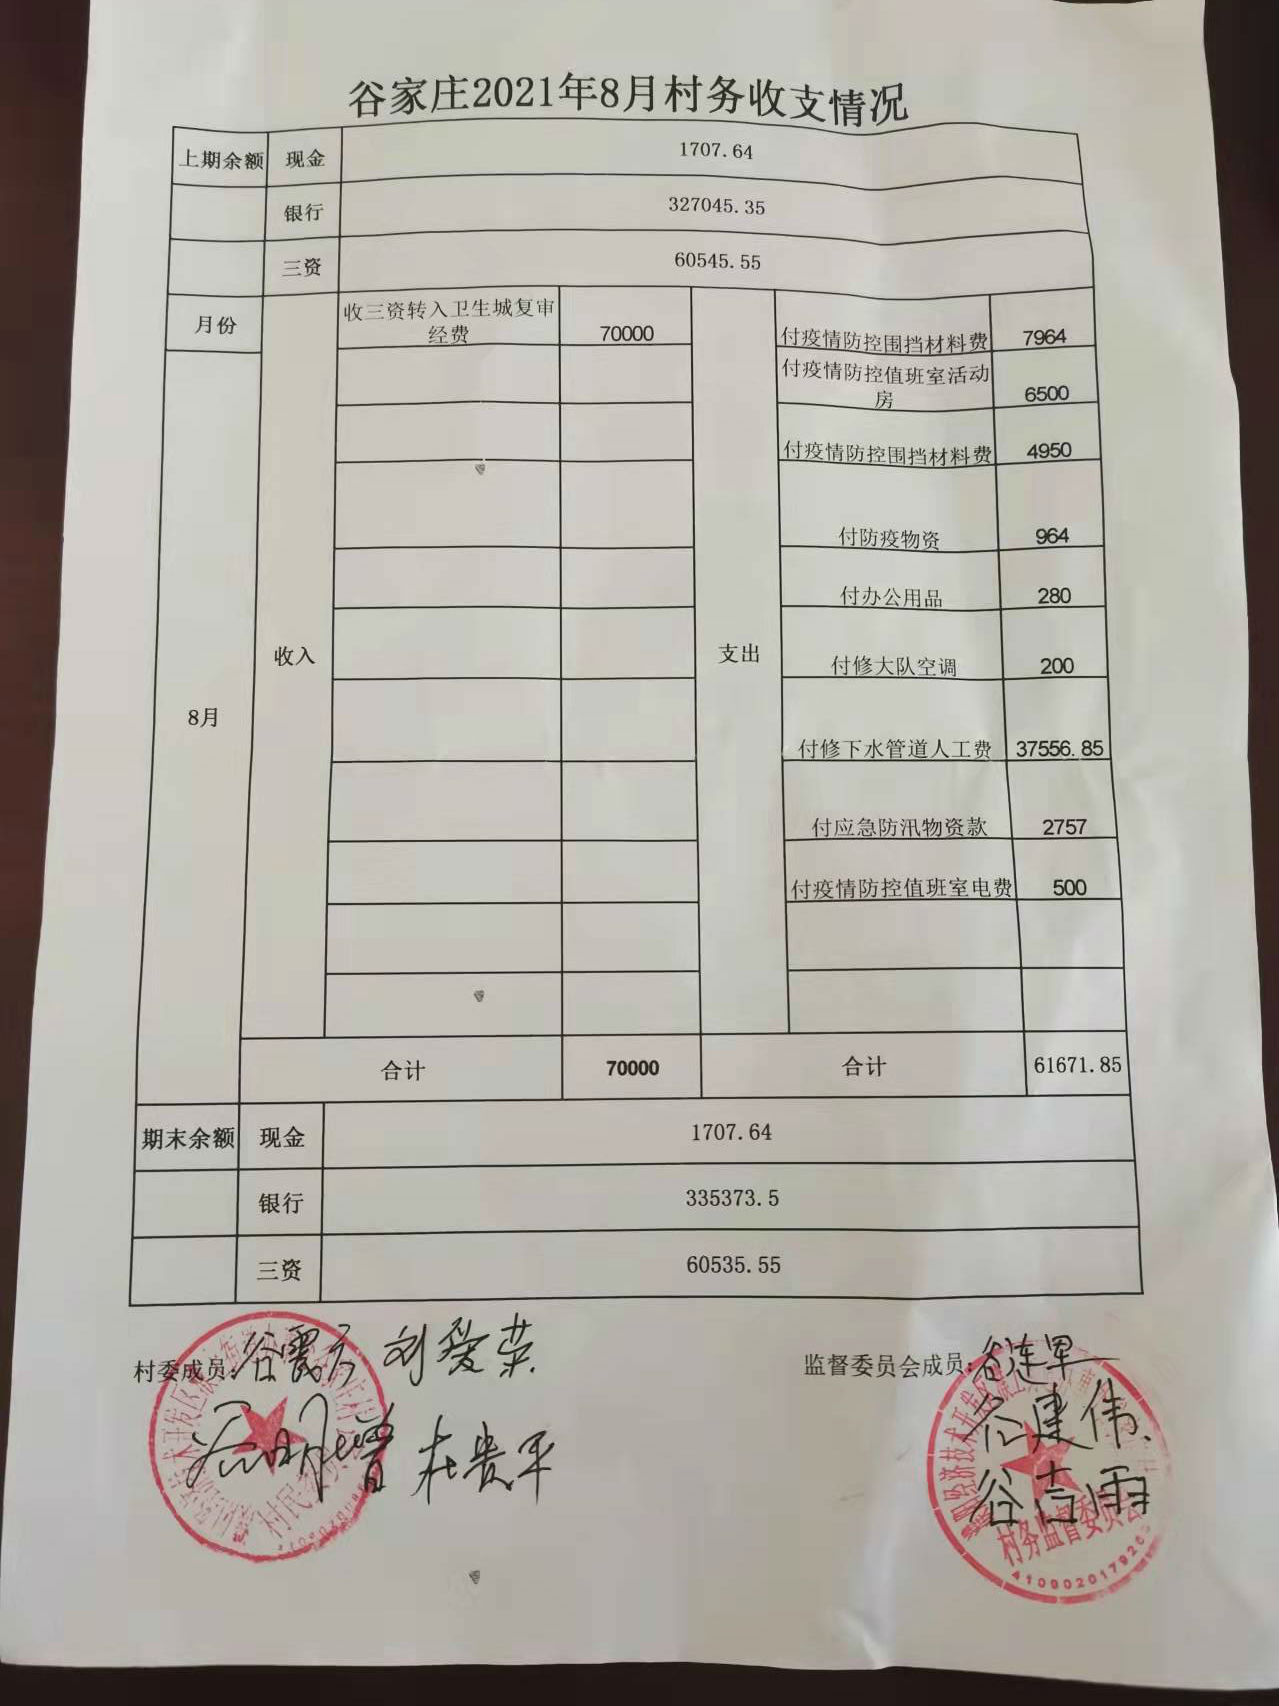 谷家庄2021年8月村务收支情况
上期余额 现金 1707.64
银行 327045.35
三资 60545.55
月份 收入 收三资转入卫生城复审经费 70000 支出 付疫情防控围挡材料费 7964
8月 付疫情防控值班室活动房 6500
付疫情防控围挡材料费 4950
付防疫物资 964
付办公用品 280
付修大队空调 200
付修下水管道人工费 37556.85
付应急防汛物资款 2757
付疫情防控值班室电费 500
合计 70000 合计 61671.85
期末余额 现金 1707.64
银行 335373.5
三资 60535.55
村委成员: 刘爱荣 监督委员会成员: 谷连军
杜贵平 谷建伟
谷吉雨
村民委员会
村务监督委员会